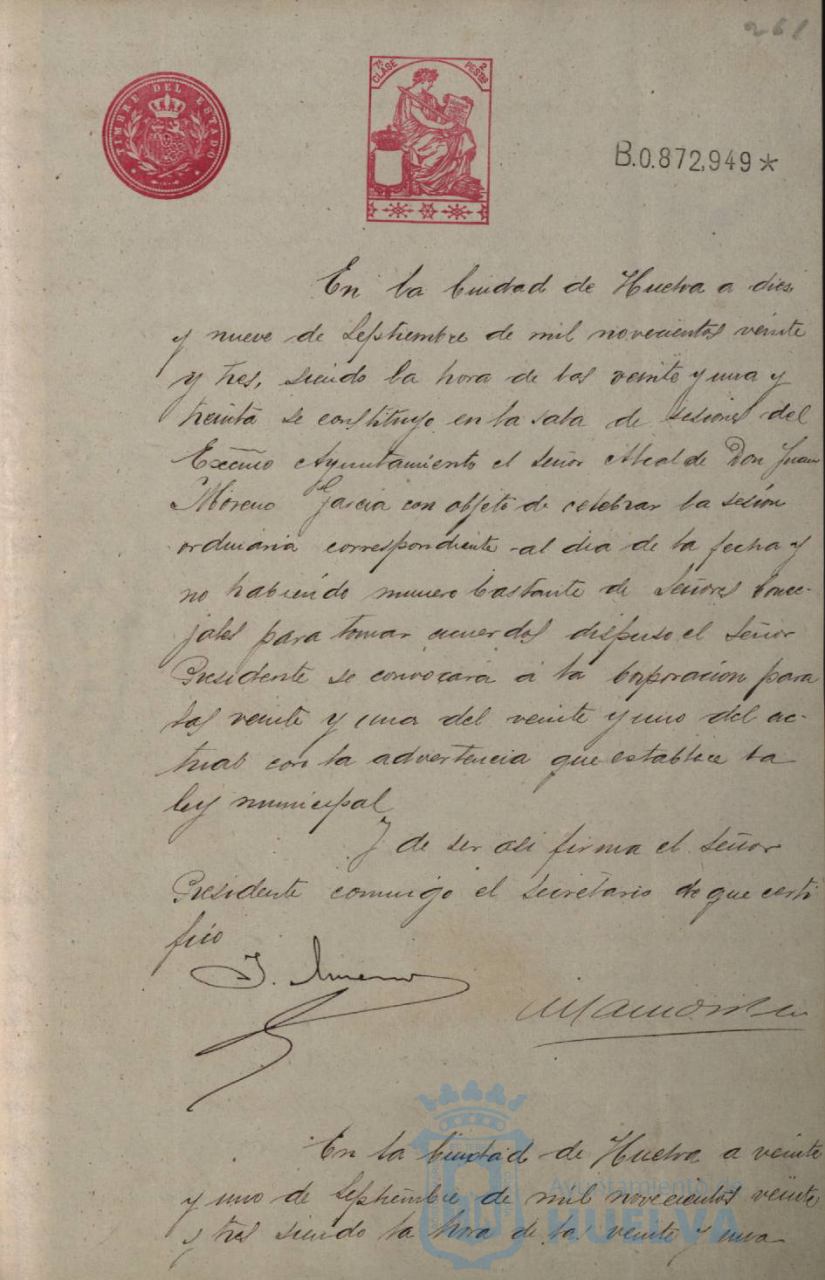 261
TIMBRE DEL ESTADO
7ª CLASE 2 PESTAS
B.0.872,949*
En la Ciudad de Huelva a dies
y nueve de Septiembre de mil novecientos veinte
y tres, siendo la hora de las veinte y una y
treinta se constituyo en la sala de sesiones del
Excmo Ayuntamiento el Señor Alcalde Don Juan
Moreno Garcia con objeto de celebrar la sesión
ordinaria correspondiente al dia de la fecha y
no habiendo numero bastante de Señores Conce-
jales para tomar acuerdos dispuso el Señor
Presidente se convocara á la Corporacion para
las veinte y una del veinte y uno del ac-
tual con la advertencia que establece la
ley municipal
Y de ser asi firma el Señor
Presidente conmigo el Secretario de que certi
fico
J. Moreno
En la Ciudad de Huelva a veinte
y uno de Septiembre de mil novecientos veinte
y tres siendo la hora de las veinte y una
Ayuntamiento de
HUELVA